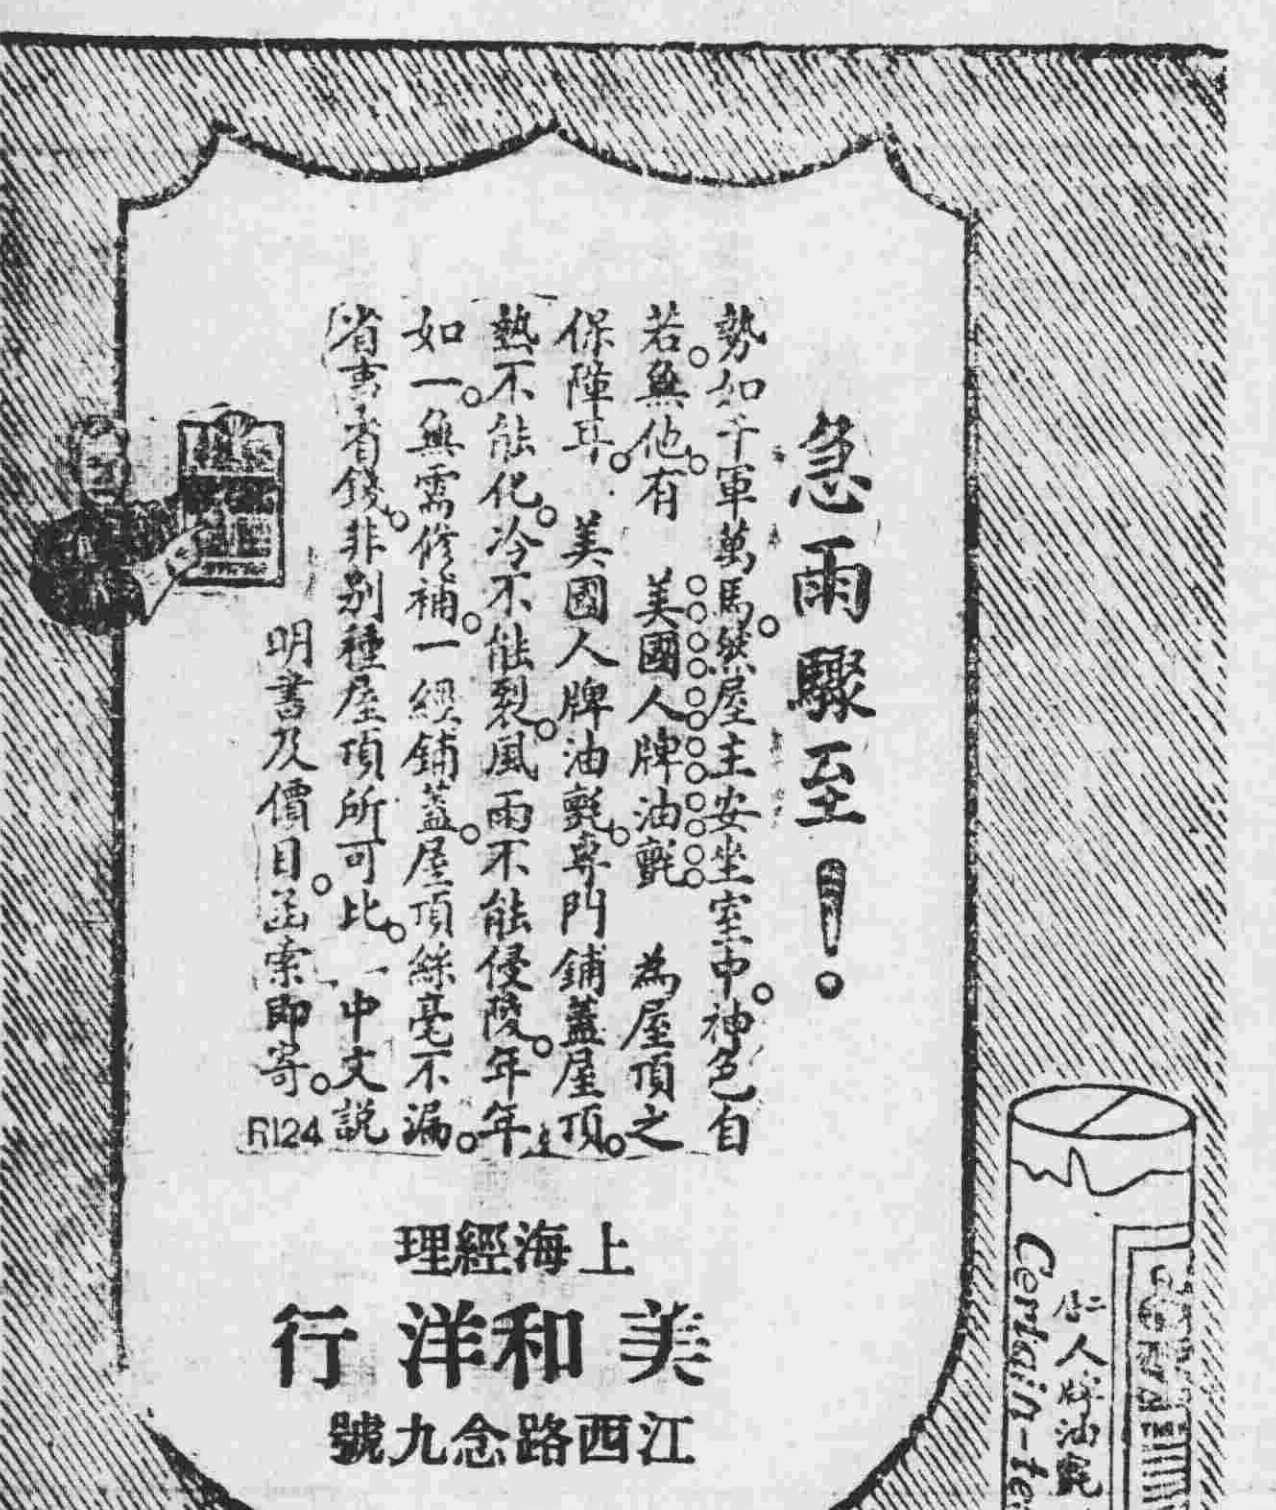 急雨驟至!
勢如千軍萬馬。然屋主安坐室中。神色自
若。無他。有 美國人牌油氈 為屋頂之
保障耳。 美國人牌油氈。專門鋪蓋屋頂。
熱不能化。冷不能裂。風雨不能侵陵。年年
如一。無需修補。一經鋪蓋。屋頂絲毫不漏。
省事省錢。非別種屋頂所可比。 中文説
明書及價目。函索即寄。
R124
上海經理
美和洋行
江西路念九號
Certain-te
人牌油氈